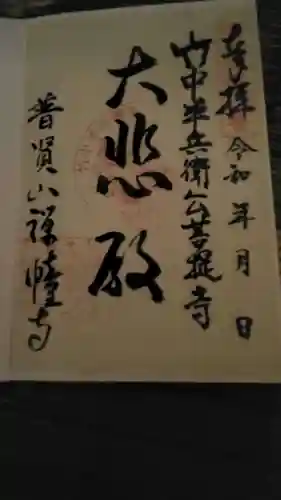 奉拝
令和 年 月 日
山中半兵衛公菩提寺
大悲殿
普賢山禅幢寺